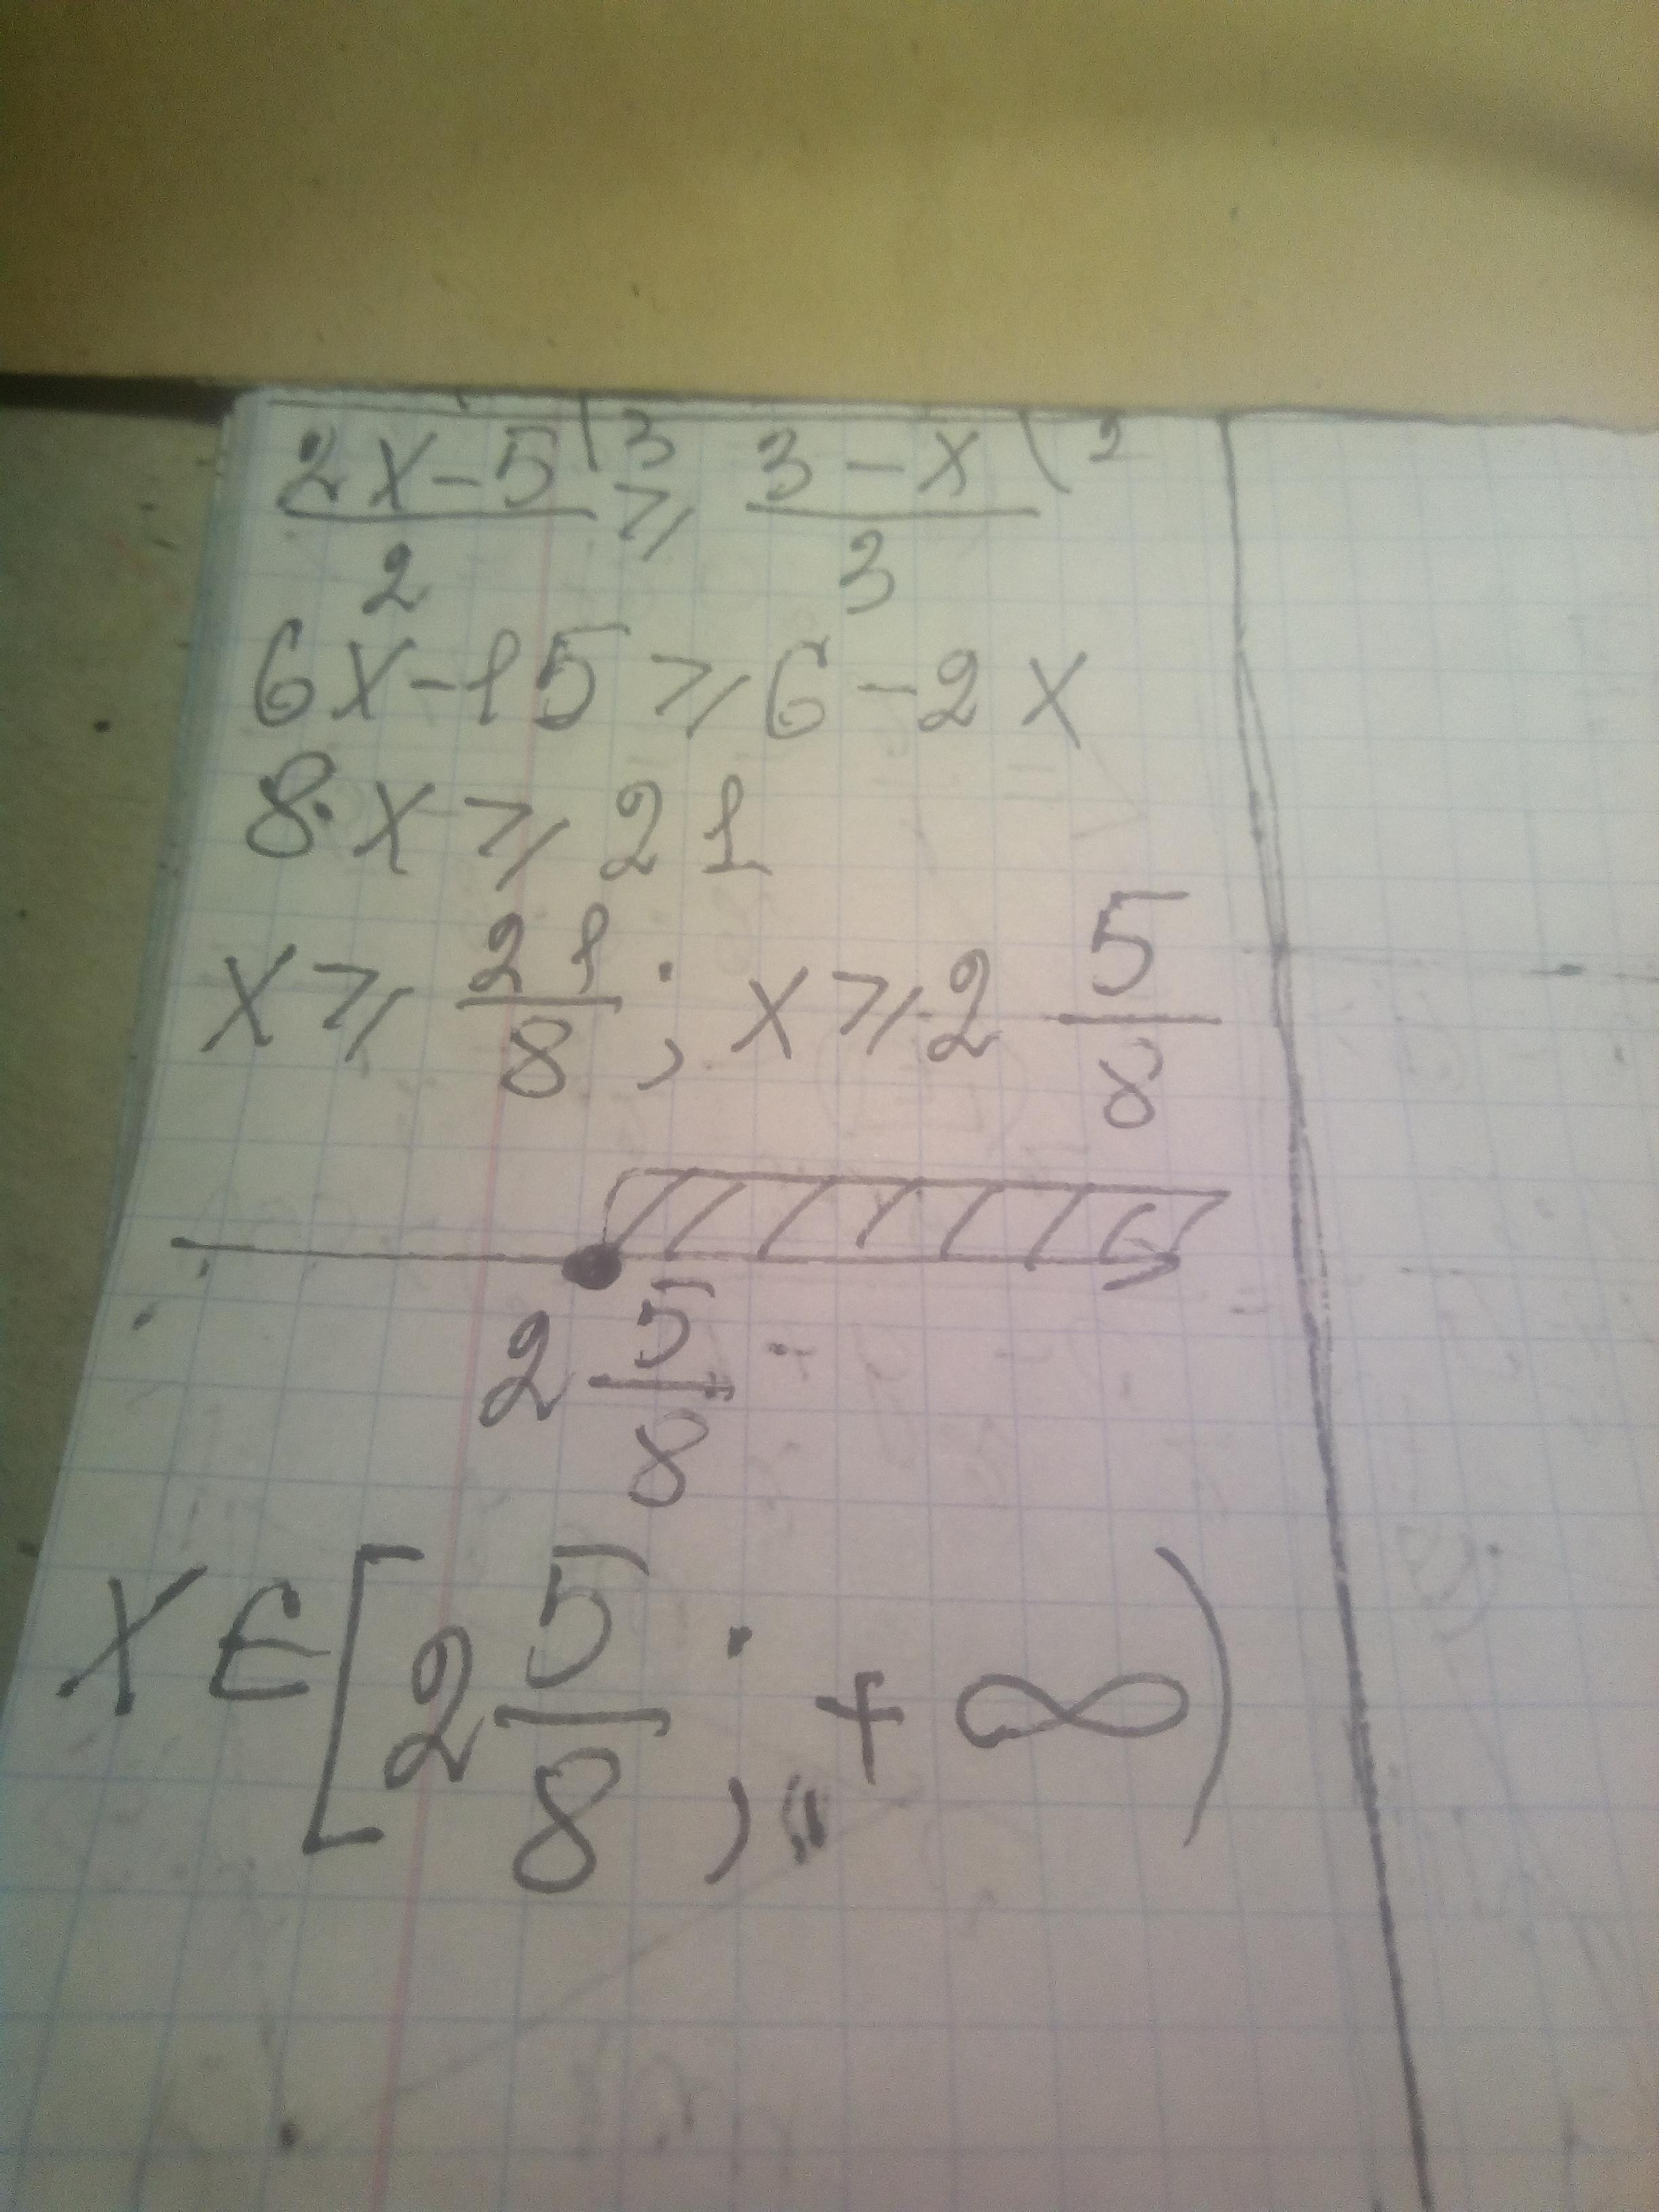 2x-5\3 / 2 ⩾ 3-x\2 / 3
6x-15⩾6-2x
8·x⩾21
x⩾21/8; x⩾2 5/8
2 5/8
x∈[2 5/8; +∞)